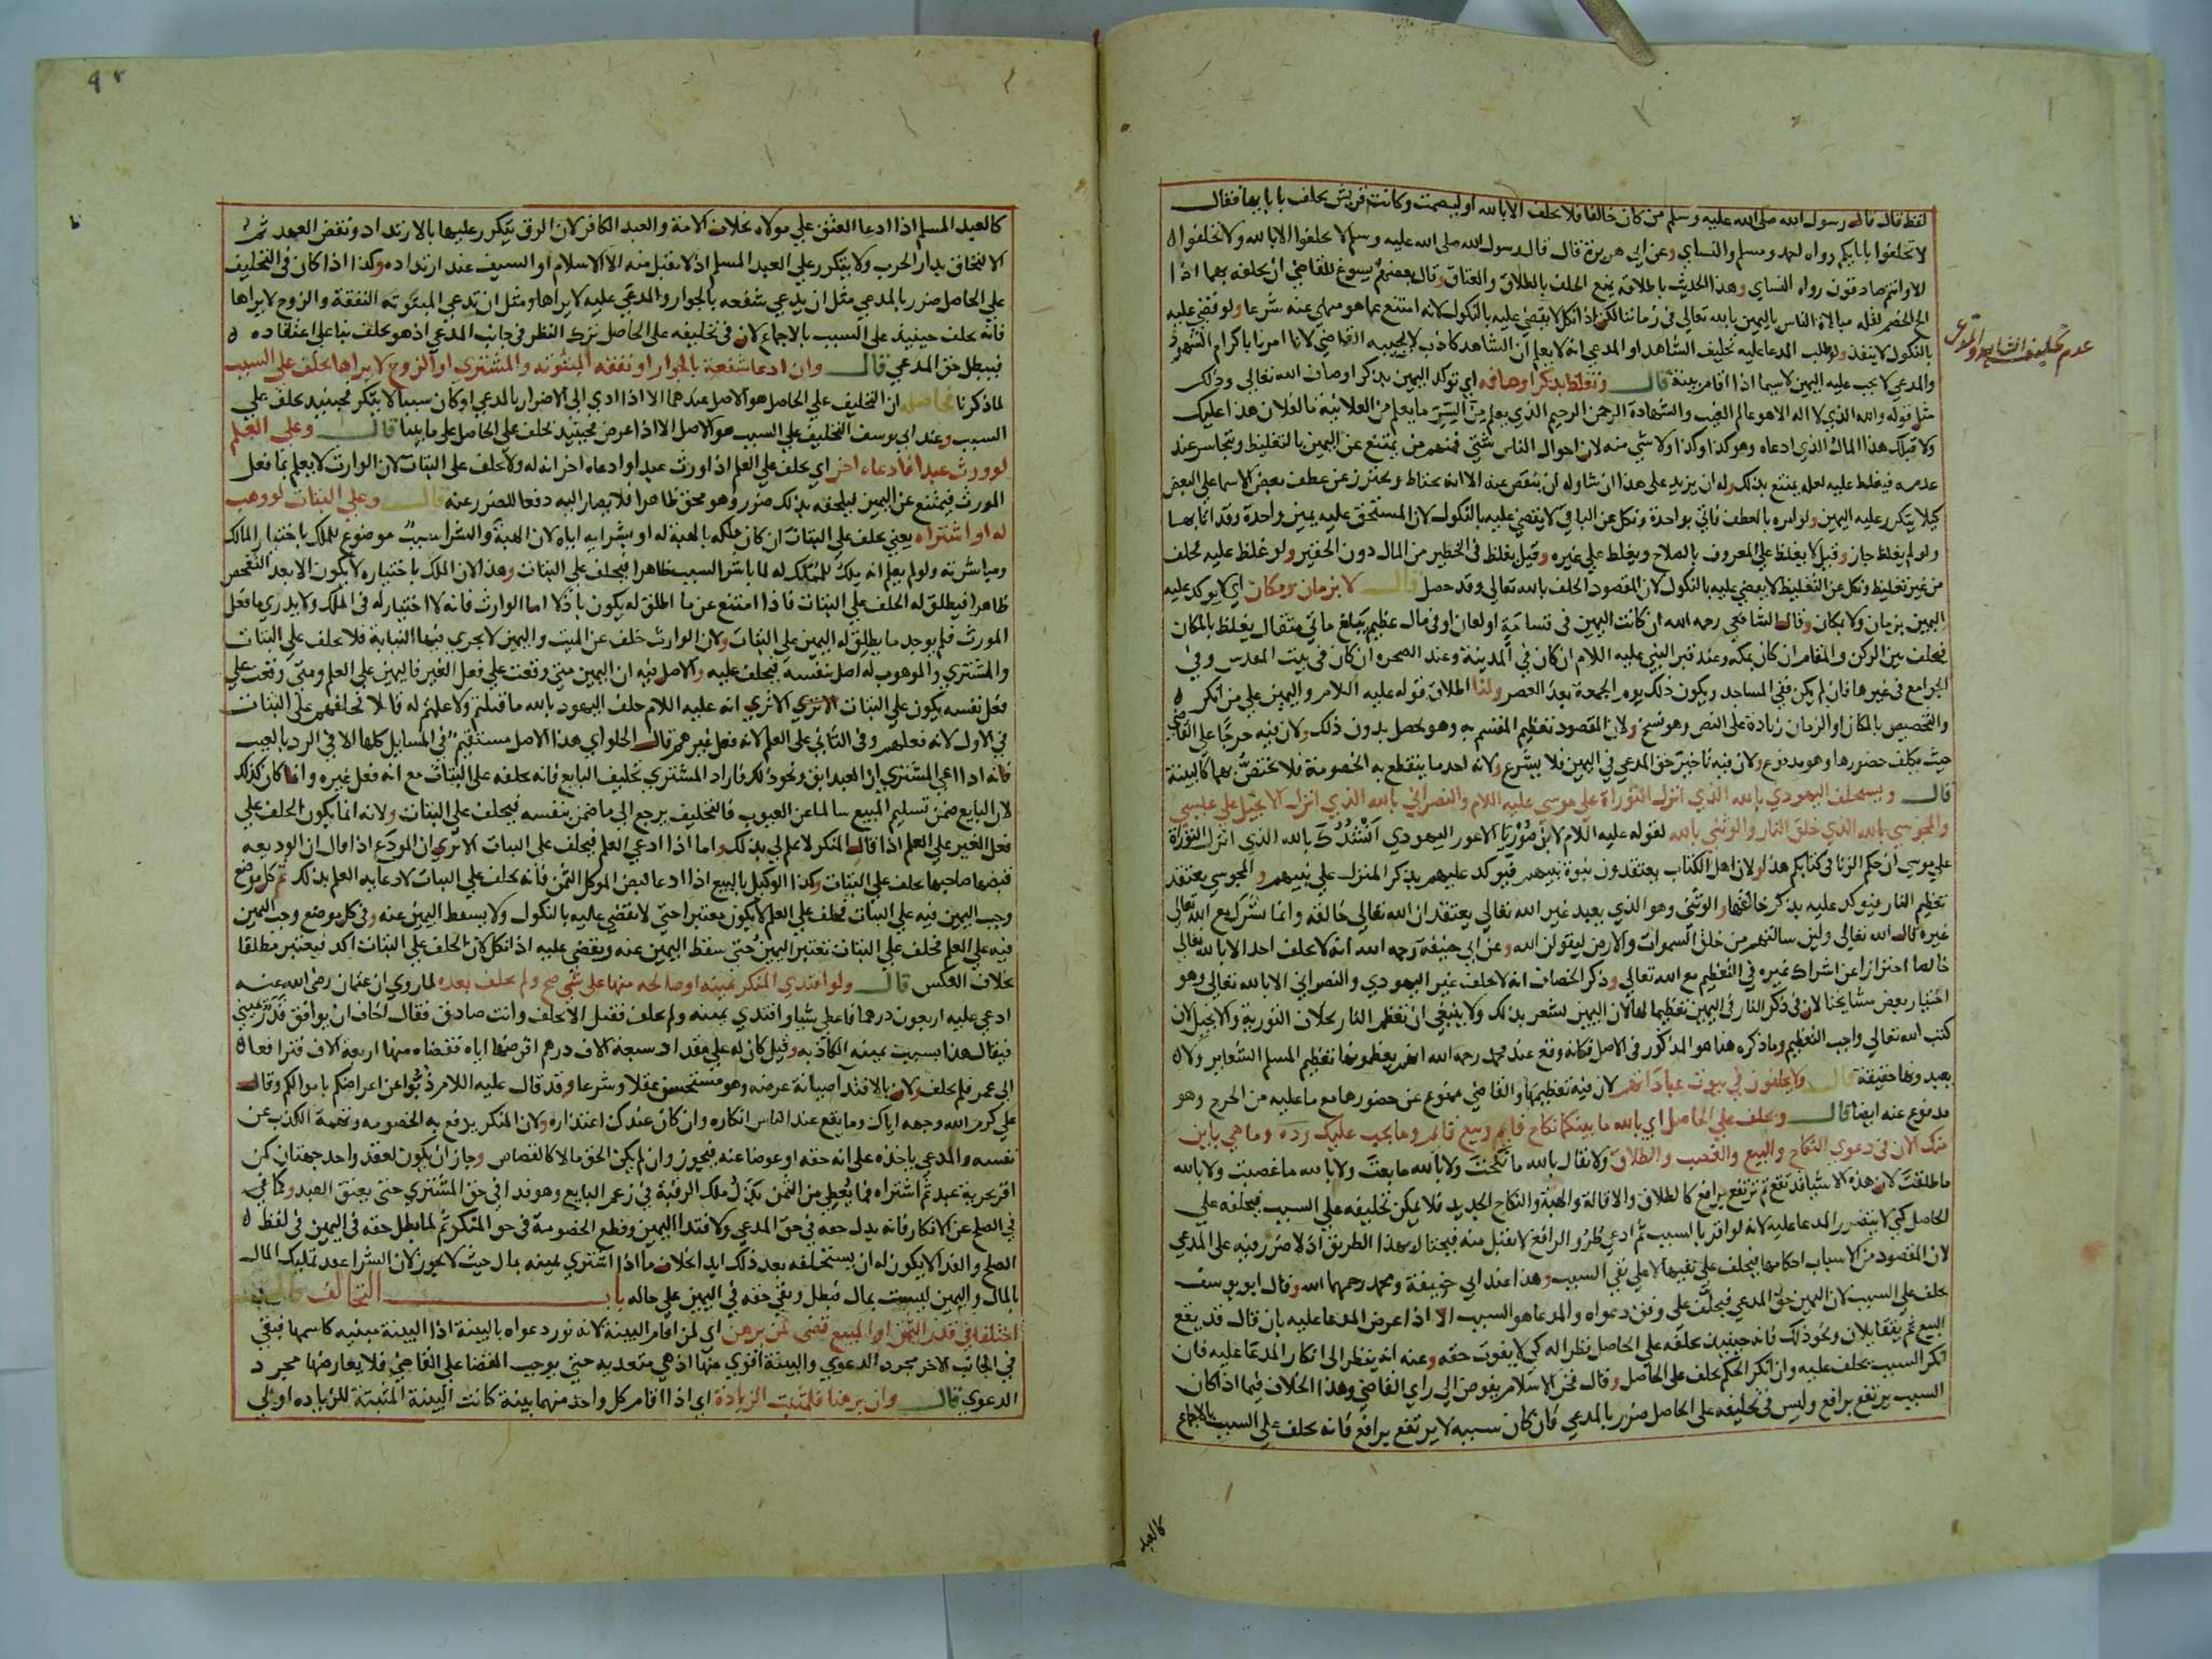 لفظ قال قال رسول الله صلى الله عليه وسلم من كان حالفا فلا يحلف الا بالله او ليصمت وكانت قريش يحلف بابايها فقال
لا تحلفوا بابايكم رواه احمد ومسلم والنساي وعن ابي هريرة قال قال رسول الله صلى الله عليه وسلم لا تحلفوا الا بالله ولا تحلفوا
الا وانتم صادقون رواه النساي وهذا الحديث باطلاقه يمنع الحلف بالطلاق والعتاق وقال بعضهم يسوغ للقاضي ان يحلفه بهما اذا
الح الخصم لقله مبالاة الناس باليمين بالله تعالي في زماننا لكن اذا نكل لا يقضي عليه بالنكول لانه امتنع عما هو منهي عنه شرعا ولو قضي عليه
بالنكول لا ينفذ ولو طلب المدعا عليه تحليف الشاهد او المدعي انه لا يعلم ان الشاهد كاذب لا يجيبه القاضي لانا امرنا باكرام الشهود
عدم تحليف الشاهد والمدعي
والمدعي لا يجب عليه اليمين لا سيما اذا اقام بينة قال وتغلظ بذكر اوصافه اي توكد اليمين بذكر اوصاف الله تعالي وذلك
مثل قوله والله الذي لا اله الا هو عالم الغيب والشهادة الرحمن الرحيم الذي يعلم من السر ما يعلم من العلانية ما لفلان هذا عليك
ولا قبلك هذا المال الذي ادعاه وهو كذا وكذا ولا شي منه لان احوال الناس شتي فمنهم من يمتنع عن اليمين بالتغليظ ويتجاسر عند
عدمه فيغلظ عليه لعله يمتنع بذلك وله ان يزيد على هذا ان شا وله ان ينقص عنه الا انه يحتاط ويحترز عن عطف بعض الاسما على البعض
كيلا يتكرر عليه اليمين ولو امره بالعطف فاتي بواحدة ونكل عن الباقي لا يقضي عليه بالنكول لان المستحق عليه يمين واحدة وقد اتي بها
ولو لم يغلظ جاز وقيل لا يغلظ على المعروف بالصلاح ويغلظ علي غيره وقيل يغلظ في الخطير من المال دون الحقير ولو غلظ عليه فحلف
من غير تغليظ ونكل عن التغليظ لا يقضي عليه بالنكول لان المقصود الحلف بالله تعالي وقد حصل قال لا بزمان ومكان اي لا يوكد عليه
اليمين بزمان ولا بمكان وقال الشافعي رحمه الله ان كانت اليمين في قسامة او لعان او في مال عظيم يبلغ مائتي مثقال يغلظ بالمكان
فيحلف بين الركن والمقام ان كان بمكه وعند قبر النبي عليه السلام ان كان في المدينة وعند الصخره ان كان في بيت المقدس وفي
الجوامع في غيرها فان لم يكن ففي المساجد ويكون ذلك يوم الجمعة بعد العصر ولنا اطلاق قوله عليه السلام واليمين علي من انكر
والتخصيص بالمكان او الزمان زيادة على النص وهو نسخ ولان المقصود تعظيم المقسم به وهو يحصل بدون ذلك ولان فيه حرجا على القاضي
حيث يكلف حضورها وهو مدفوع ولان فيه تاخير حق المدعي في اليمين فلا يشرع ولانه احد ما ينقطع به الخصومة فلا يختص بهما كالبينة
قال ويستحلف اليهودي بالله الذي انزل التوراة علي موسي عليه السلام والنصراني بالله الذي انزل الانجيل علي عيسي
والمجوسي بالله الذي خلق النار والوثني بالله لقوله عليه السلام لابن صوريا الاعور اليهودي انشدك بالله الذي انزل التوراة
علي موسي ان حكم الزنا في كتابكم هذا ولان اهل الكتاب يعتقدون نبوة نبيهم فيوكد عليهم بذكر المنزل علي نبيهم والمجوسي يعتقد
تعظيم النار فيوكد عليه بذكر خالقها والوثني وهو الذي يعبد غير الله تعالي يعتقد ان الله تعالي خالقه وانما يشرك مع الله تعالي
غيره قال الله تعالي ولين سالتهم من خلق السموات والارض ليقولن الله وعن ابي حنيفة رحمه الله انه لا يحلف احد الا بالله تعالي
خالصا احترازا عن اشراك غيره في التعظيم مع الله تعالي وذكر الخصاف انه لا يحلف غير اليهودي والنصراني الا بالله تعالي وهو
اختيار بعض مشايخنا لان في ذكر النار في اليمين تعظيما لها لان اليمين تشعر بذلك ولا ينبغي ان تعظم النار بخلاف التورية والانجيل لان
كتب الله تعالي واجب التعظيم وما ذكره هنا هو المذكور في الاصل فكانه وقع عند محمد رحمه الله انهم يعظمونها تعظيم المسلم الشعاير ولا
يعبدونها حقيقة قال ولا يحلفون في بيوت عباداتهم لان فيه تعظيمها والقاضي ممنوع عن حضورها مع ما عليه من الحرج وهو
مدفوع عنه ايضا قال ويحلف علي الحاصل اي بالله ما بينكما نكاح قايم وبيع قايم وما يجب عليك رده وما هي باين
منك الان في دعوي النكاح والبيع والغصب والطلاق ولا يقال بالله ما نكحت ولا بالله ما بعت ولا بالله ما غصبت ولا بالله
ما طلقت لان هذه الاشيا قد تقع ثم ترتفع برافع كالطلاق والاقالة والهبة والنكاح الجديد فلا يمكن تحليفه علي السبب فيحلفه علي
الحاصل كي لا يتضرر المدعا عليه لانه لو اقر بالسبب ثم ادعي طرو الرافع لا يقبل منه فيحتال بهذا الطريق اذ لا ضرر فيه على المدعي
لان المقصود من الاسباب احكامها فيحلف على نفيها لا علي نفي السبب وهذا عند ابي حنيفة ومحمد رحمهما الله وقال ابو يوسف
يحلف على السبب لان اليمين حق المدعي فيحلف علي وفق دعواه والمدعا هو السبب الا اذا عرض المدعا عليه بان قال قد يقع
البيع ثم يتقايلان ونحو ذلك فانه حينيذ يحلفه على الحاصل نظرا له كي لا يفوت حقه وعنه انه ينظر الى انكار المدعا عليه فان
انكر السبب يحلف عليه وان انكر الحكم يحلف على الحاصل وقال فخر الاسلام يفوض الى راي القاضي وهذا الخلاف فيما اذا كان
السبب يرتفع برافع وليس في تحليفه على الحاصل ضرر بالمدعي فان كان سببه لا يرتفع برافع فانه يحلف علي السبب بالاجماع
كالعبد
كالعبد المسلم اذا ادعا العتق علي مولاه بخلاف الامة والعبد الكافر لان الرق يتكرر عليها بالارتداد ونقض العهد ثم
الالتحاق بدار الحرب ولا يتكرر علي العبد المسلم اذ لا يقبل منه الا الاسلام او السيف عند ارتداده وكذا اذا كان في التحليف
علي الحاصل ضرر بالمدعي مثل ان يدعي شفعه بالجوار والمدعي عليه لا يراها ومثل ان تدعي المبتوته النفقة والزوج لا يراها
فانه يحلف حينيذ على السبب بالاجماع لان في تحليفه على الحاصل ترك النظر في جانب المدعي اذ هو يحلف بنا علي اعتقاده
فيبطل حق المدعي قال وان ادعا شفعة بالجوار او نفقة المبتوته والمشتري او الزوج لا يراها يحلف على السبب
لما ذكرنا فحاصله ان التحليف علي الحاصل هو الاصل عندهما الا اذا ادي الي الاضرار بالمدعي او كان سببا لا يتكرر فحينيذ يحلف علي
السبب وعند ابي يوسف التحليف علي السبب هو الاصل الا اذا عرض فحينيذ يحلف على الحاصل علي ما بينا قال وعلى العلم
لو ورث عبدا فادعاه اخر اي يحلف علي العلم اذا ورث عبدا وادعاه اخر انه له ولا يحلف على البتات لان الوارث لا يعلم بما فعل
المورث فيمتنع عن اليمين فيلحقه بذلك ضرر وهو محق ظاهرا فلا يصار اليه دفعا للضرر عنه قال وعلي البتات لو وهب
له او اشتراه يعني يحلف علي البتات ان كان ملكه بالهبة له او بشرايه اياه لان الهبة والشرا سبب موضوع للملك باختيار المالك
ومباشرته ولو لم يعلم انه ملك للمملك له لما باشر السبب ظاهرا فيحلف علي البتات وهذا لان الملك باختياره لا يكون الا بعد التفحص
ظاهرا فيطلق له الحلف علي البتات فاذا امتنع عن ما اطلق له يكون باذلا اما الوارث فانه لا اختيار له في الملك ولا يدري ما فعل
المورث فلم يوجد ما يطلق له اليمين علي البتات ولان الوارث خلف عن الميت واليمين لا يجري فيها النيابة فلا يحلف علي البتات
والمشتري والموهوب له اصل بنفسه فيحلف عليه والاصل فيه ان اليمين متي وقعت علي فعل الغير فاليمين على العلم ومتي وقعت علي
فعل نفسه يكون علي البتات الا تري انه عليه السلام حلف اليهود بالله ما قتلتم ولا علمتم له قاتلا فحلفهم علي البتات
في الاول لانه فعلهم وفي الثاني علي العلم لانه فعل غيرهم قال الحلواي هذا الاصل مستقيم في المسايل كلها الا في الرد بالعيب
فانه اذا ادعي المشتري ان العبد ابق ونحو ذلك فاراد المشتري تحليف البايع فانه يحلفه علي البتات مع انه فعل غيره وانما كان كذلك
لان البايع ضمن تسليم المبيع سالما عن العيوب فالتحليف يرجع الي ما ضمن بنفسه فيحلف علي البتات ولانه انما يكون الحلف علي
فعل الغير علي العلم اذا قال المنكر لا علم لي بذلك واما اذا ادعي العلم فيحلف على البتات الا تري ان المودع اذا قال ان الوديعه
قبضها صاحبها يحلف علي البتات وكذا الوكيل بالبيع اذا ادعا قبض الموكل الثمن فانه يحلف علي البتات لادعايه العلم بذلك ثم كل موضع
وجب اليمين فيه علي البتات فحلف علي العلم لا يكون معتبرا حتي لا يقضي عليه بالنكول ولا يسقط اليمين عنه وفي كل موضع وجب اليمين
فيه علي العلم فحلف علي البتات تعتبر اليمين حتي سقط اليمين عنه ويقضي عليه اذا نكل لان الحلف علي البتات اكد فيعتبر مطلقا
بخلاف العكس قال ولو افتدي المنكر يمينه او صالحه منها على شي صح ولم يحلف بعده لما روي ان عثمان رضي الله عنه
ادعي عليه اربعون درهما فاعطي شيا وافتدي يمينه ولم يحلف فقيل الا تحلف وانت صادق فقال اخاف ان يوافق قدر يميني
فيقال هذا بسبب يمينه الكاذبه وقيل كان له علي مقداد سبعة الاف درهم اقرضها اياه فقضاه منها اربعة الاف فترافعا
الي عمر فلم يحلف ولان بالافتدا صيانة عرضه وهو مستحسن عقلا وشرعا وقد قال عليه السلام ذبوا عن اعراضكم باموالكم وقال
علي كرم الله وجهه اياك وما يقع عند الناس انكاره وان كان عندك اعتذاره ولان المنكر يدفع به الخصومه وتهمة الكذب عن
نفسه والمدعي ياخذه على انه حقه او عوضا عنه فيجوز وان لم يكن الحق مالا كالقصاص وجاز ان يكون لعقد واحد جهتان كمن
اقر بحرية عبد ثم اشتراه فما يعطي من الثمن بدل ملك الرقبة في زعم البايع وهو فدا في حق المشتري حتي يعتق العبد وكما في
في الصلح عن الانكار فانه بدل حقه في حق المدعي ولافتدا اليمين وقطع الخصومة في حق المنكر ثم لما بطل حقه في اليمين في لفظ
الصلح والفدا لا يكون له ان يستحلفه بعد ذلك ابدا بخلاف ما اذا اشتري يمينه بمال حيث لا يجوز لان الشرا عقد تمليك المال
بالمال واليمين ليست بمال فبطل وبقي حقه في اليمين علي حاله باب التحالف قال
اختلفا في قدر الثمن او المبيع قضي لمن برهن اي لمن اقام البينة لانه نور دعواه بالبينة اذ البينة مبينه كاسمها فبقي
في الجانب الاخر مجرد الدعوي والبينة اقوي منها اذ هي متعدية حتي يوجب القضا علي القاضي فلا يعارضها مجرد
الدعوي قال وان برهنا فلمثبت الزيادة اي اذا اقام كل واحد منهما بينة كانت البينة المثبتة للزياده اولي